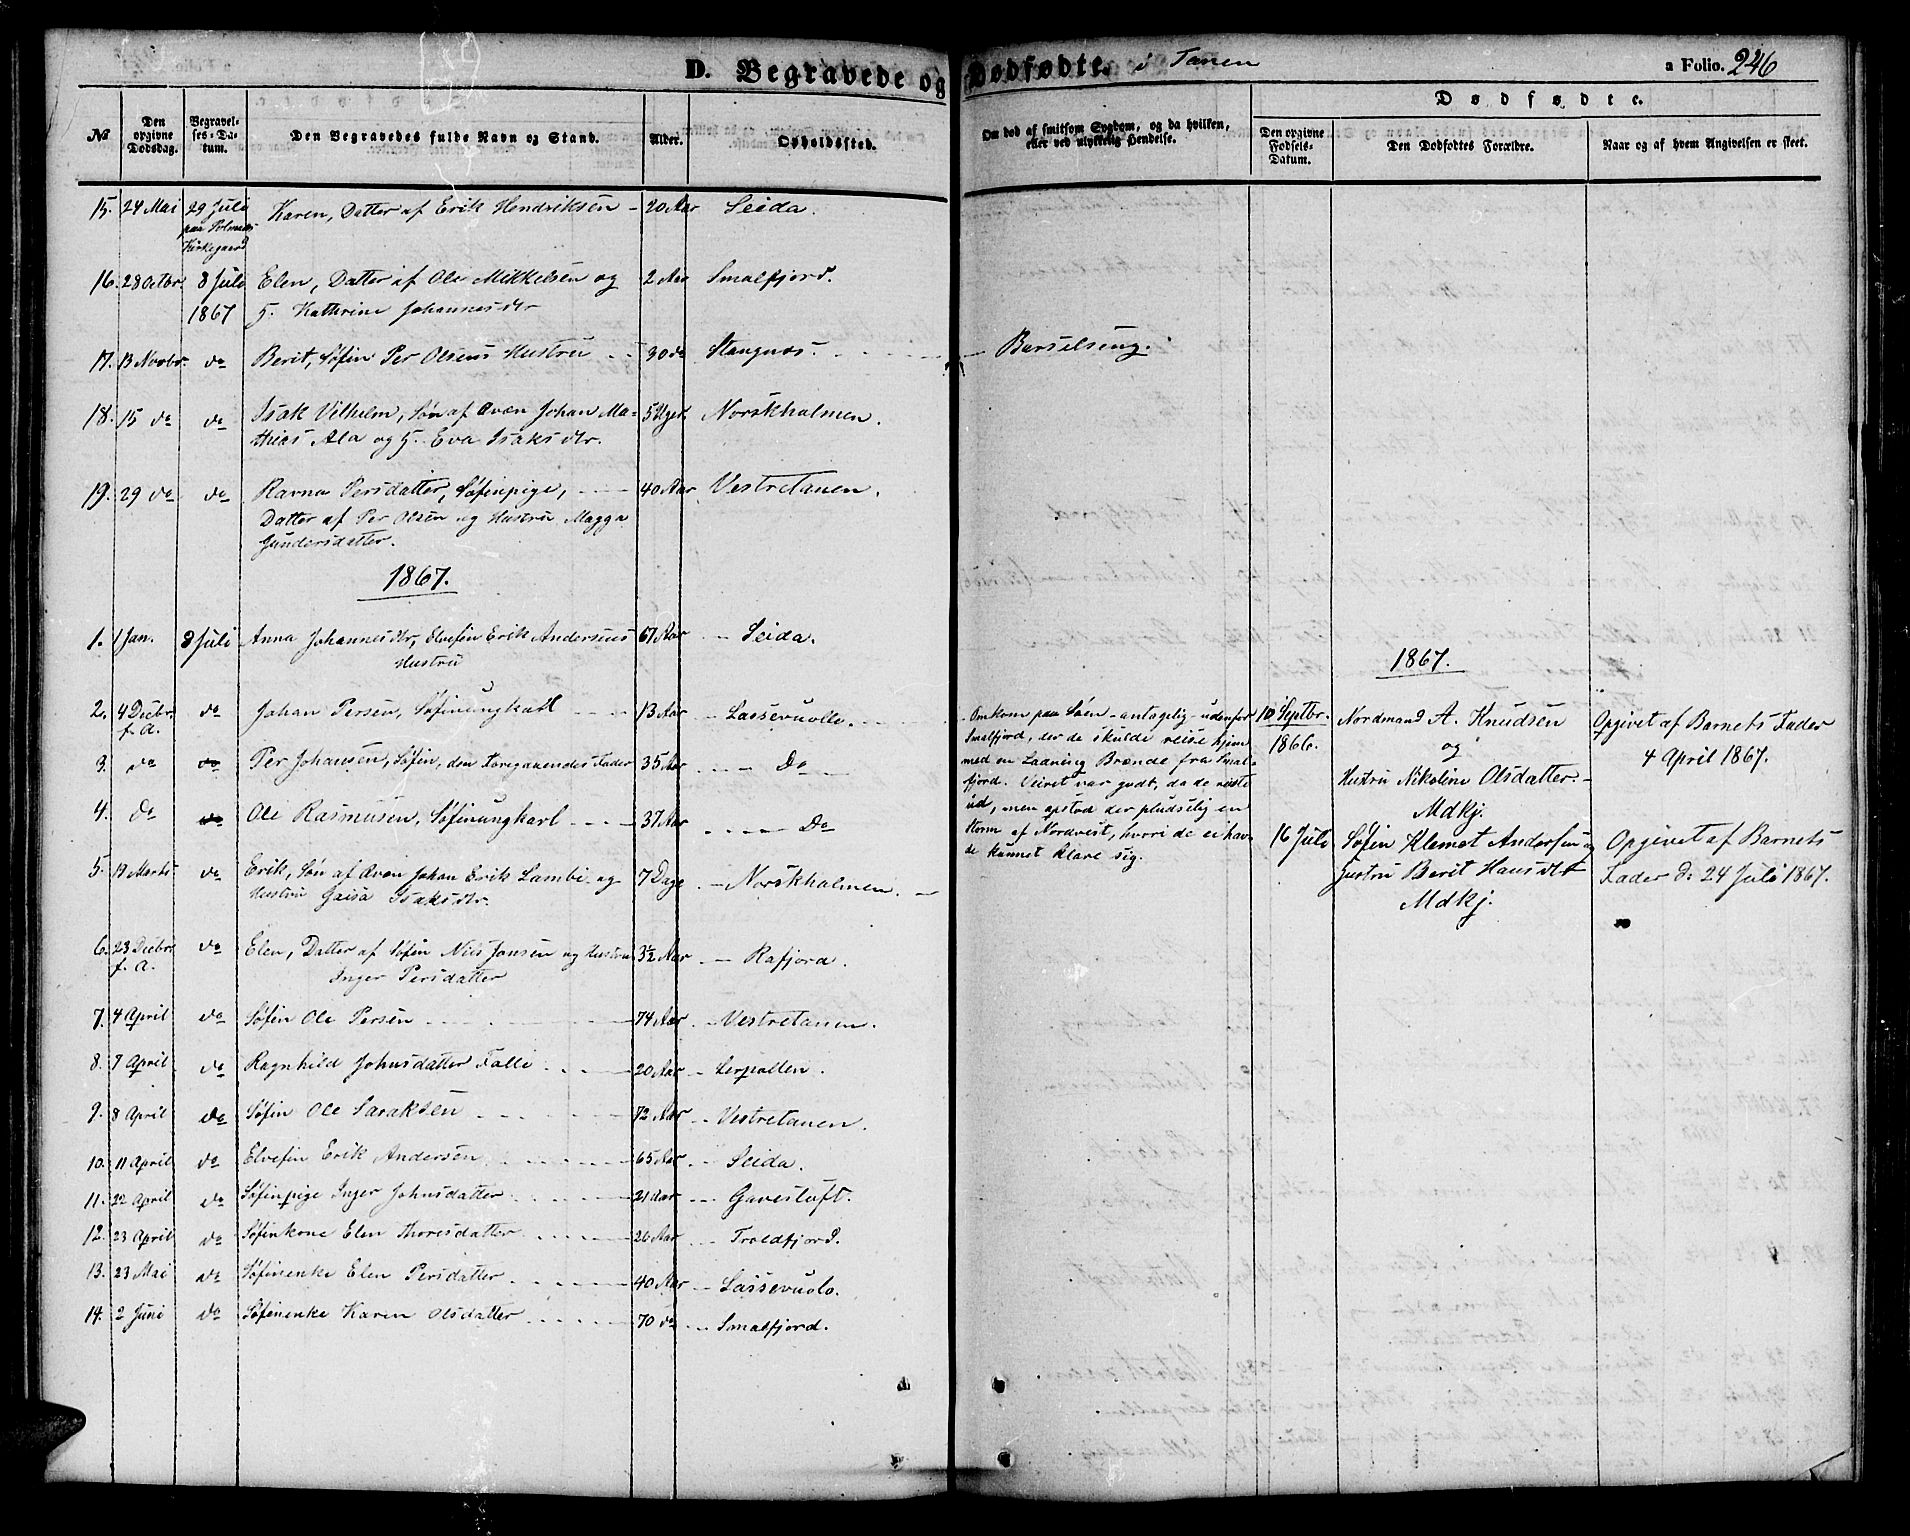 D. Begravede og Dødfødte. i Tanen
a Folio. 246
No
Den opgivne Dødsdag.
Begravel-
ses-Da-
tum.
Den Begravedes fulde Navn og Stand.
Alder.
Opholdssted.
Om død af smitsom Sygdom, og da hvilken,
eller ved ulykkelig Hendelse.
Dødfødte.
Den opgivne
Fødsels-
Datum.
Den Dødfødtes Forældre.
Naar og af hvem Angivelsen er skeet.
15. 24 Mai 29 Juli Karen, Datter af Erik Hendriksen - 20 Aar Seida.
paa Polmaks
Kirkegaard
16. 28 Octbr. 8 Juli Elen, Datter af Ole Mikkelsen og 2 Aar Smalfjord.
1867 H. Kathrine Johannesdtr
17. 13 Novbr. do Berit, Søfin Per Olsens Hustru 30 do Stangnæs. Barselseng.
18. 15 do do Isak Vilhelm, Søn af Qvæn Johan Ma- 5 Uger Norskholmen.
thias Ala og H. Eva Isaksdtr.
19. 29 do do Ravna Persdatter, Søfinpige, 40 Aar Vestretanen.
Datter af Per Olsen og Hustru Magga
Gundersdatter.
1867.
1. 1 Jan. 8 Juli Anna Johannesdtr, Elvefin Erik Andersens 67 Aar - Seida.
Hustru
2. 4 Decbr. do Johan Persen, Søfinungkarl 13 Aar - Lassevuolle.
f. A.
3. do do Per Johansen, Søfin, den Foregaaendes Fader 35 Aar - Do
4. do do Ole Rasmusen, Søfinungkarl 37 Aar - Do
5. 19 Marts do Erik, Søn af Qvæn Johan Erik Lambi og 7 Dage - Norskholmen.
Hustru Gaisa Isaksdtr.
6. 23 Decbr. do Elen, Datter af Søfin Nils Jansen og Hustru 3½ Aar - Rafjord.
f. A. Inger Persdatter
7. 4 April do Søfin Ole Persen 74 Aar - Vestretanen.
8. 7 April do Ragnhild Johnsdatter Falli 20 Aar - Lerpollen.
9. 8 April do Søfin Ole Saraksen 72 Aar - Vestretanen.
10. 11 April do Elvefin Erik Andersen 65 Aar - Seida.
11. 22 April do Søfinpige Inger Johnsdatter 21 Aar - Gavesluft.
12. 23 April do Søfinkone Elen Thoresdatter 26 Aar - Troldfjord.
13. 23 Mai do Søfinenke Elen Persdatter 40 Aar - Lassevuolo.
14. 2 Juni do Søfinenke Karen Olsdatter 70 do - Smalfjord.
Omkom paa Søen - antagelig - udenfor
Smalfjord, der de skulde reise hjem
med en Ladning Brænde fra Smal-
fjord. Veiret var godt, da de reiste
ud, men opstod der pludselig en
Storm af Nordvest, hvori de ei hav-
de kunnet klare sig.
1867.
10 Septbr. Nordmand A. Knudsen Opgivet af Barnets Fader
1866. og 4 April 1867.
Hustru Nikoline Olsdatter -
Mdkj.
16 Juli Søfin Klemet Andersen og Opgivet af Barnets
Hustru Berit Hansdtr Fader d: 24 Juli 1867.
Mdkj.